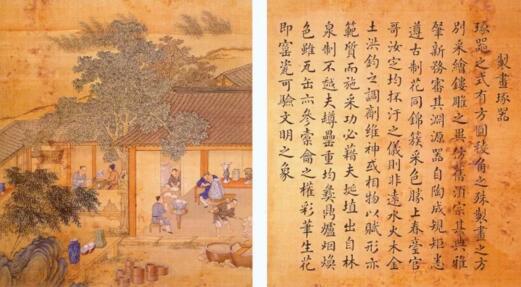 製畫琢器
琢器之式有方圓稜角之殊製畫之方
別采繪鏤雕之異倣舊須宗其典雅
肇新務審其淵源器自陶成規矩悉
遵古制花同錦簇采色勝上春臺官
哥汝定均抔汙之儀則非遠水火木金
土洪鈞之調劑維神或相物以賦形亦
範質而施采功必藉夫埏埴出自林
泉制不越夫罇罍重均彝鼎爐烟煥
色雖瓦缶亦參橐籥之權彩筆生花
即窰瓷可驗文明之象